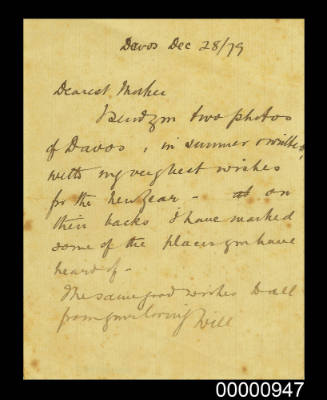 Davos Dec 28/79
Dearest Mother
I send you two photos
of Davos, in summer & winter,
with my very best wishes
for the new year - at on
their backs I have marked
some of the places you have
heard of -
The same good wishes to all
from your loving Will
00000947